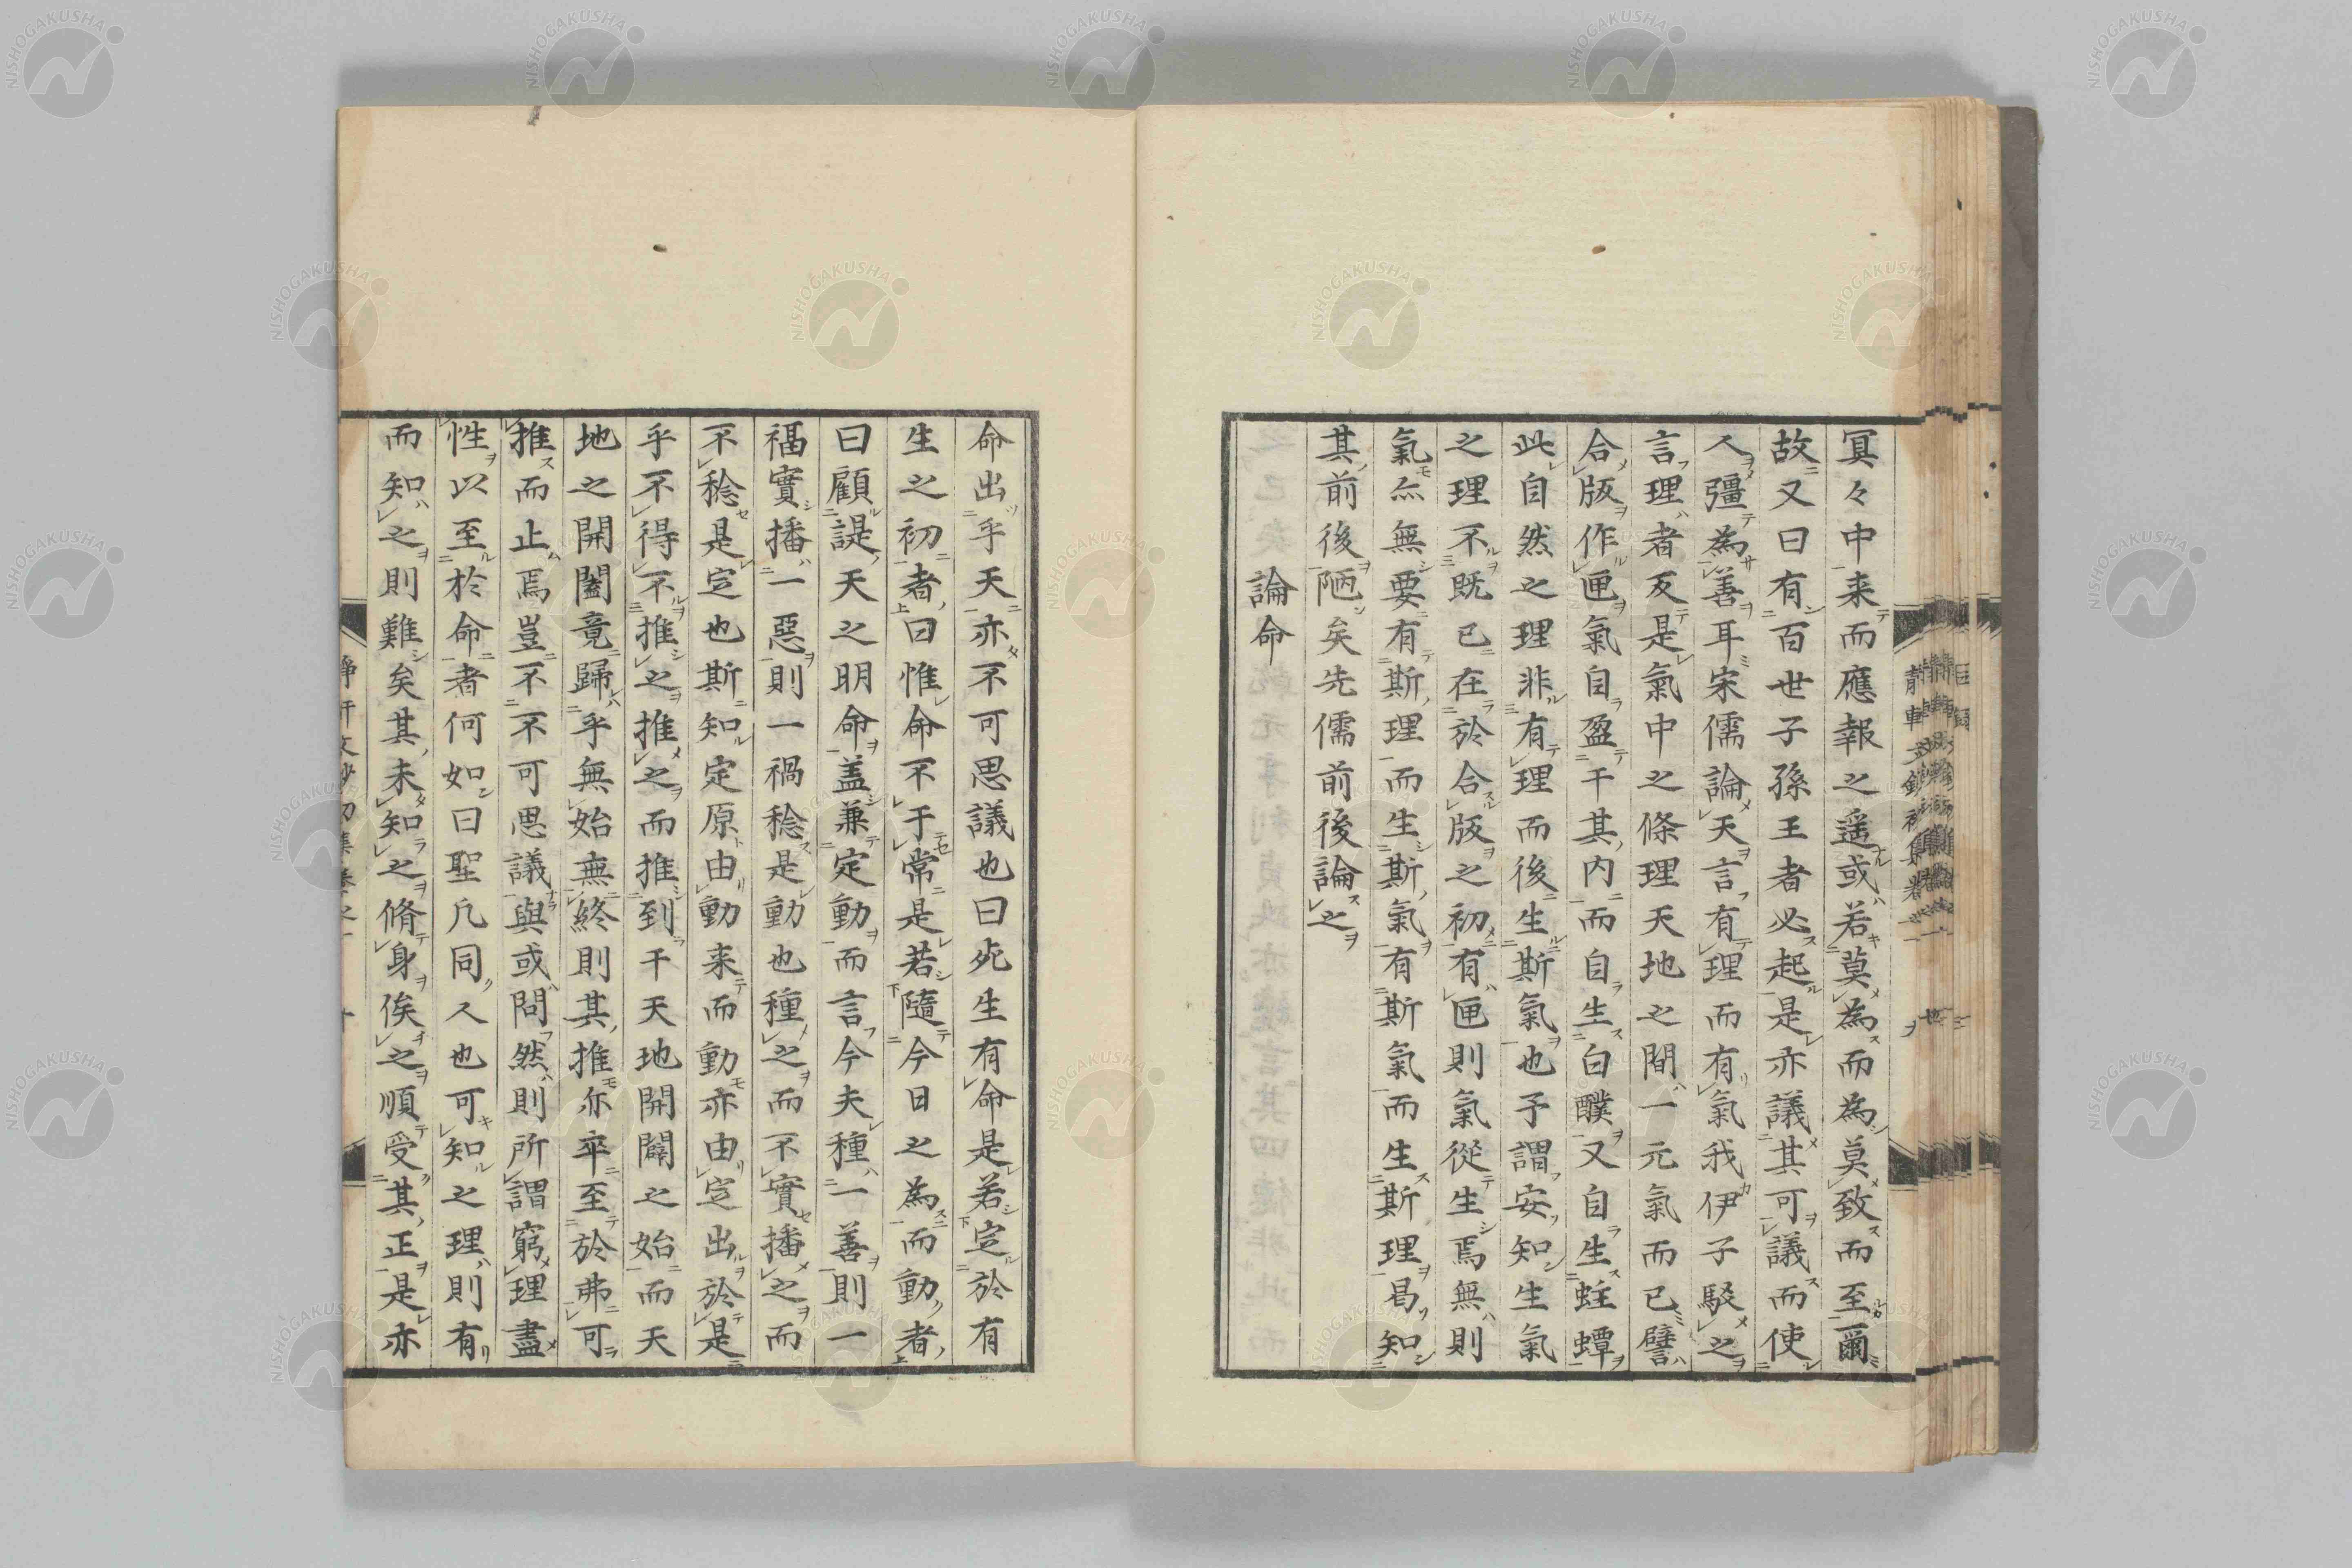 冥々中来而應報之遥或若莫為而為莫致而至爾
故又曰有百世子孫王者必起是亦議其可議而使
人彊為善耳宋儒論天言有理而有氣我伊子駁之
言理者反是氣中之條理天地之間一元氣而已譬
合版作匣氣自盈干其内而自生白醭又自生蛀蟫
此自然之理非有理而後生斯氣也予謂安知生氣
之理不既已在於合版之初有匣則氣從生焉無則
氣亦無要有斯理而生斯氣有斯氣而生斯理曷知
其前後陋矣先儒前後論之
論命
命出乎天亦不可思議也曰死生有命是若定於有
生之初者曰惟命不于常是若隨今日之為而動者
曰顧諟天之明命蓋兼定動而言今夫種一善則一
福實播一惡則一禍稔是動也種之而不實播之而
不稔是定也斯知定原由動来而動亦由定出於是
乎不得不推之推之而推到干天地開闢之始而天
地之開闔竟歸乎無始無終則其推亦卒至於弗可
推而止焉豈不不可思議與或問然則所謂窮理盡
性以至於命者何如曰聖凡同人也可知之理則有
而知之則難矣其未知之脩身俟之順受其正是亦
NISHOGAKUSHA